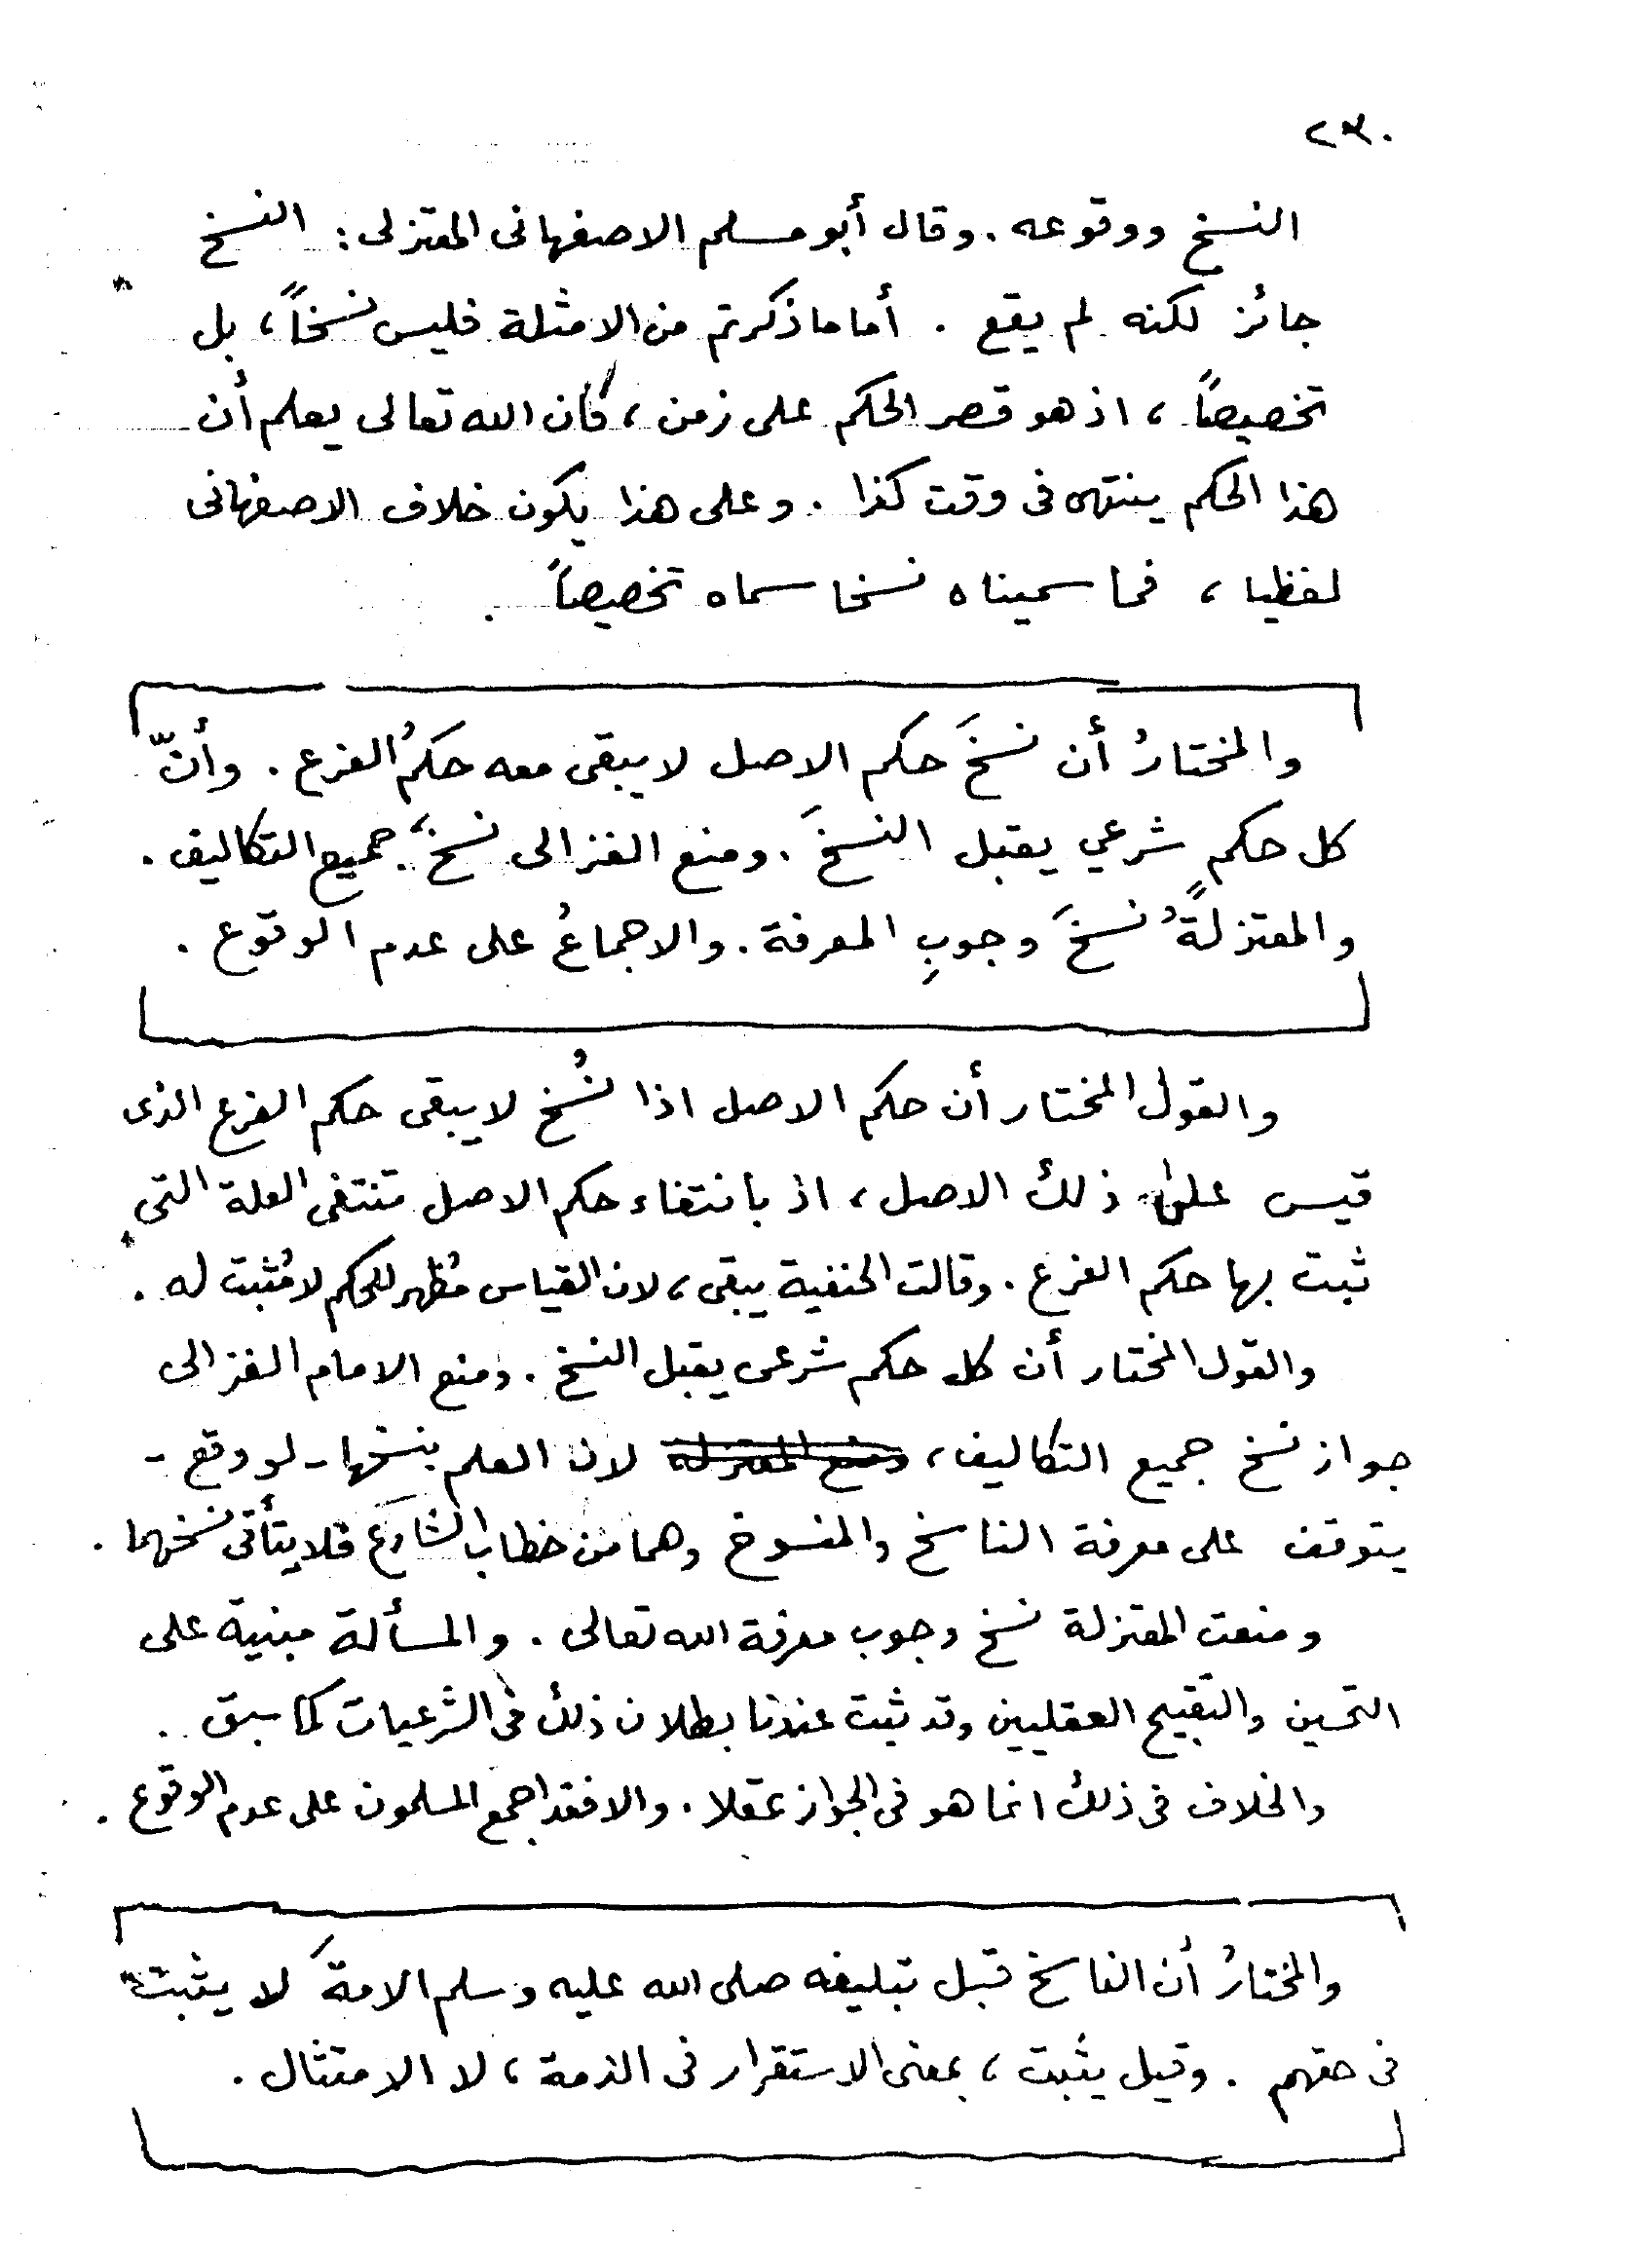 ٢٣٠
النسخ ووقوعه . وقال أبو مسلم الاصفهانى المعتزلى : النسخ
جائز لكنه لم يقع . أما ما ذكرتم من الامثلة فليس نسخاً ، بل
تخصيصاً ، اذ هو قصر الحكم على زمن ، فكأن الله تعالى يعلم أن
هذا الحكم ينتهى فى وقت كذا . وعلى هذا يكون خلاف الاصفهانى
لفظيا ، فما سميناه نسخا سماه تخصيصاً .
والمختارُ أن نسخَ حكم الاصل لا يبقى معه حكمُ الفرع . وأنّ
كل حكمٍ شرعي يقبل النسخَ . ومنع الغزالى نسخَ جميع التكاليف .
والمعتزلةُ نسخَ وجوبِ المعرفة . والاجماعُ على عدم الوقوع .
والقول المختار أن حكم الاصل اذا نُسخ لا يبقى حكم الفرع الذى
قيس على ذلك الاصل ، اذ بانتفاء حكم الاصل تنتفى العلة التى
ثبت بها حكم الفرع . وقالت الحنفية يبقى ، لان القياس مُظهر للحكم لا مُثبت له .
والقول المختار أن كل حكم شرعى يقبل النسخ . ومنع الامام الغزالى
جواز نسخ جميع التكاليف ، ومنع المعتزلة لان العلم بنسخها - لو وقع -
يتوقف على معرفة الناسخ والمنسوخ وهما من خطاب الشارع فلا يتأتى نسخهما .
ومنعت المعتزلة نسخ وجوب معرفة الله تعالى . والمسألة مبنية على
التحسين والتقبيح العقليين وقد ثبت عندنا بطلان ذلك فى الشرعيات كما سبق .
والخلاف فى ذلك انما هو فى الجواز عقلا . والا فقد اجمع المسلمون على عدم الوقوع .
والمختارُ أن الناسخ قبل تبليغه صلى الله عليه وسلم الامةَ لا يثبت
فى حقهم . وقيل يثبت ، بمعنى الاستقرار فى الذمة ، لا الامتثال .